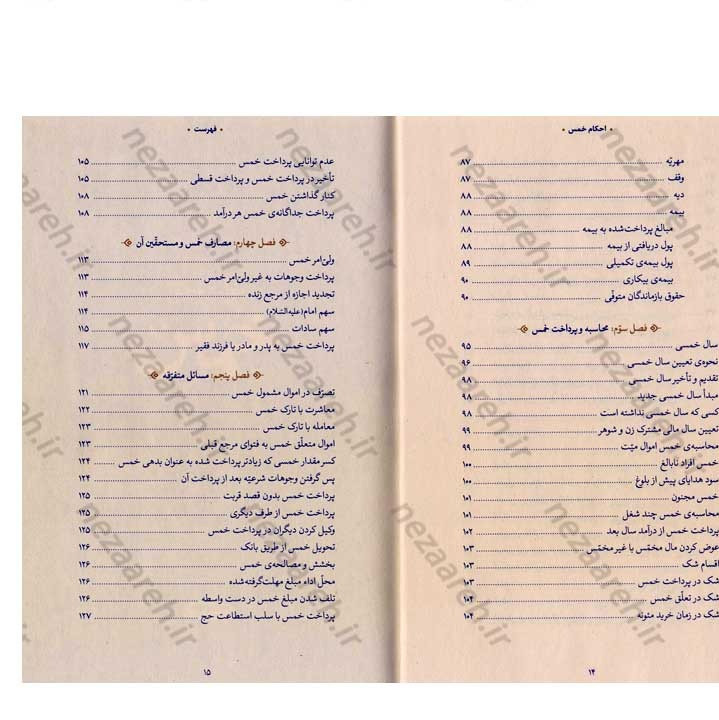 • احکام خمس •
مهریّه ... ۸۷
وقف ... ۸۷
دیه ... ۸۸
بیمه ... ۸۸
مبالغ پرداخت‌شده به بیمه ... ۸۸
پول دریافتی از بیمه ... ۸۸
پول بیمه‌ی تکمیلی ... ۸۹
بیمه‌ی بیکاری ... ۹۰
حقوق بازماندگان متوفّی ... ۹۰
فصل سوّم: محاسبه و پرداخت خمس
سال خمسی ... ۹۵
نحوه‌ی تعیین سال خمسی ... ۹۶
تقدیم و تأخیر سال خمسی ... ۹۸
مبدأ سال خمسی جدید ... ۹۸
کسی که سال خمسی نداشته است ... ۹۸
تعیین سال مالی مشترک زن و شوهر ... ۹۹
محاسبه‌ی خمس اموال میّت ... ۹۹
خمس افراد نابالغ ... ۱۰۰
سود هدایای پیش از بلوغ ... ۱۰۰
خمس مجنون ... ۱۰۱
محاسبه‌ی خمس چند شغل ... ۱۰۱
پرداخت خمس از درآمد سال بعد ... ۱۰۲
عوض کردن مال مخمّس با غیر مخمّس ... ۱۰۳
اقسام شک ... ۱۰۳
شک در پرداخت خمس ... ۱۰۳
شک در تعلّق خمس ... ۱۰۴
شک در زمان خرید مئونه ... ۱۰۴
۱۴
• فهرست •
عدم توانایی پرداخت خمس ... ۱۰۵
تأخیر در پرداخت خمس و پرداخت قسطی ... ۱۰۵
کنار گذاشتن خمس ... ۱۰۸
پرداخت جداگانه‌ی خمس هر درآمد ... ۱۰۸
فصل چهارم: مصارف خمس و مستحقّین آن
ولیّ امر خمس ... ۱۱۳
پرداخت وجوهات به غیر ولیّ امر خمس ... ۱۱۳
تجدید اجازه از مرجع زنده ... ۱۱۴
سهم امام(علیه‌السّلام) ... ۱۱۴
سهم سادات ... ۱۱۵
پرداخت خمس به پدر و مادر یا فرزند فقیر ... ۱۱۷
فصل پنجم: مسائل متفرّقه
تصرّف در اموال مشمول خمس ... ۱۲۱
معاشرت با تارک خمس ... ۱۲۲
معامله با تارک خمس ... ۱۲۳
اموال متعلّق خمس به فتوای مرجع قبلی ... ۱۲۳
کسر مقدار خمسی که زیادتر پرداخت شده به عنوان بدهی خمس ... ۱۲۴
پس گرفتن وجوهات شرعیّه بعد از پرداخت آن ... ۱۲۴
پرداخت خمس بدون قصد قربت ... ۱۲۵
پرداخت خمس از طرف دیگری ... ۱۲۵
وکیل کردن دیگران در پرداخت خمس ... ۱۲۵
تحویل خمس از طریق بانک ... ۱۲۶
بخشش و مصالحه‌ی خمس ... ۱۲۶
محلّ اداء مبلغ مهلت‌گرفته‌شده ... ۱۲۶
تلف شدن مبلغ خمس در دست واسطه ... ۱۲۶
پرداخت خمس با سلب استطاعت حج ... ۱۲۷
۱۵
nezaareh.ir